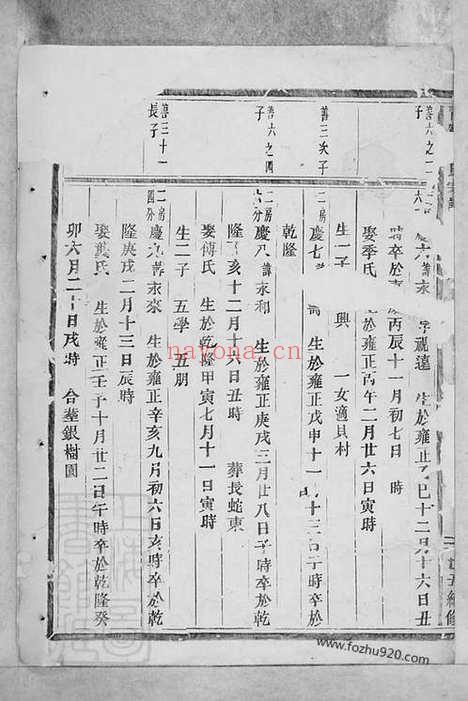 善六之二
子
六
六 諱永 字祿遠 生於雍正 巳十二月十六日丑
時卒於 丙辰十一月初七日 時
娶季氏 於雍正丙午二月廿六日寅時
生一子 興 一女適貝村
善三次子
二房 慶七 生於雍正戊申十一 十三日子時卒於
乾隆
善六之四
子
二房 慶八 諱永和 生於雍正庚戌三月廿八日子時卒於乾
隆 亥十二月十六日丑時 葬長蛇東
娶傅氏 生於乾隆甲寅七月十一日寅時
生二子 五學 五朋
善三十一
長子
二房
四分 慶九 諱永來 生於雍正辛亥九月初六日亥時卒於乾
隆庚戌二月十三日辰時
娶龔氏 生於雍正壬子十月廿二日午時卒於乾隆癸
卯六月二十日戌時 合葬銀樹園
nayona.cn
www.fozhu920.com